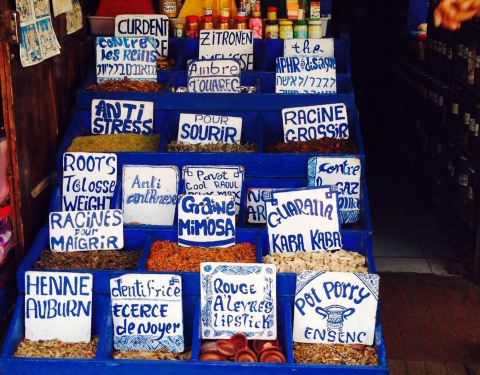 CURDENT
ZITRONEN
MELISSE
Contre
les Reins
Ambre
J'OUAREJ
the
APHRodisaque
ANTI
STRESS
POUR
SOURIR
RACINE
GROSSIR
ROOTS
To Losse
WEIGHT
RACINES
pour
MAIGRIR
Anti
Pavot
COOL RAOUL
Contre
GRAINE
MIMOSA
GUARANA
KABA KABA
HENNE
AUBURN
dentifrice
ECERCE
de Noyer
ROUGE
A LEVRES
LIPSTICK
POT PORRY
ENSENC